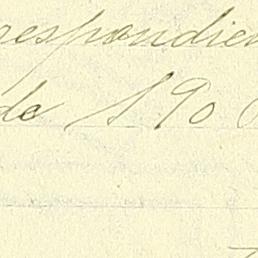 respondien
de 190